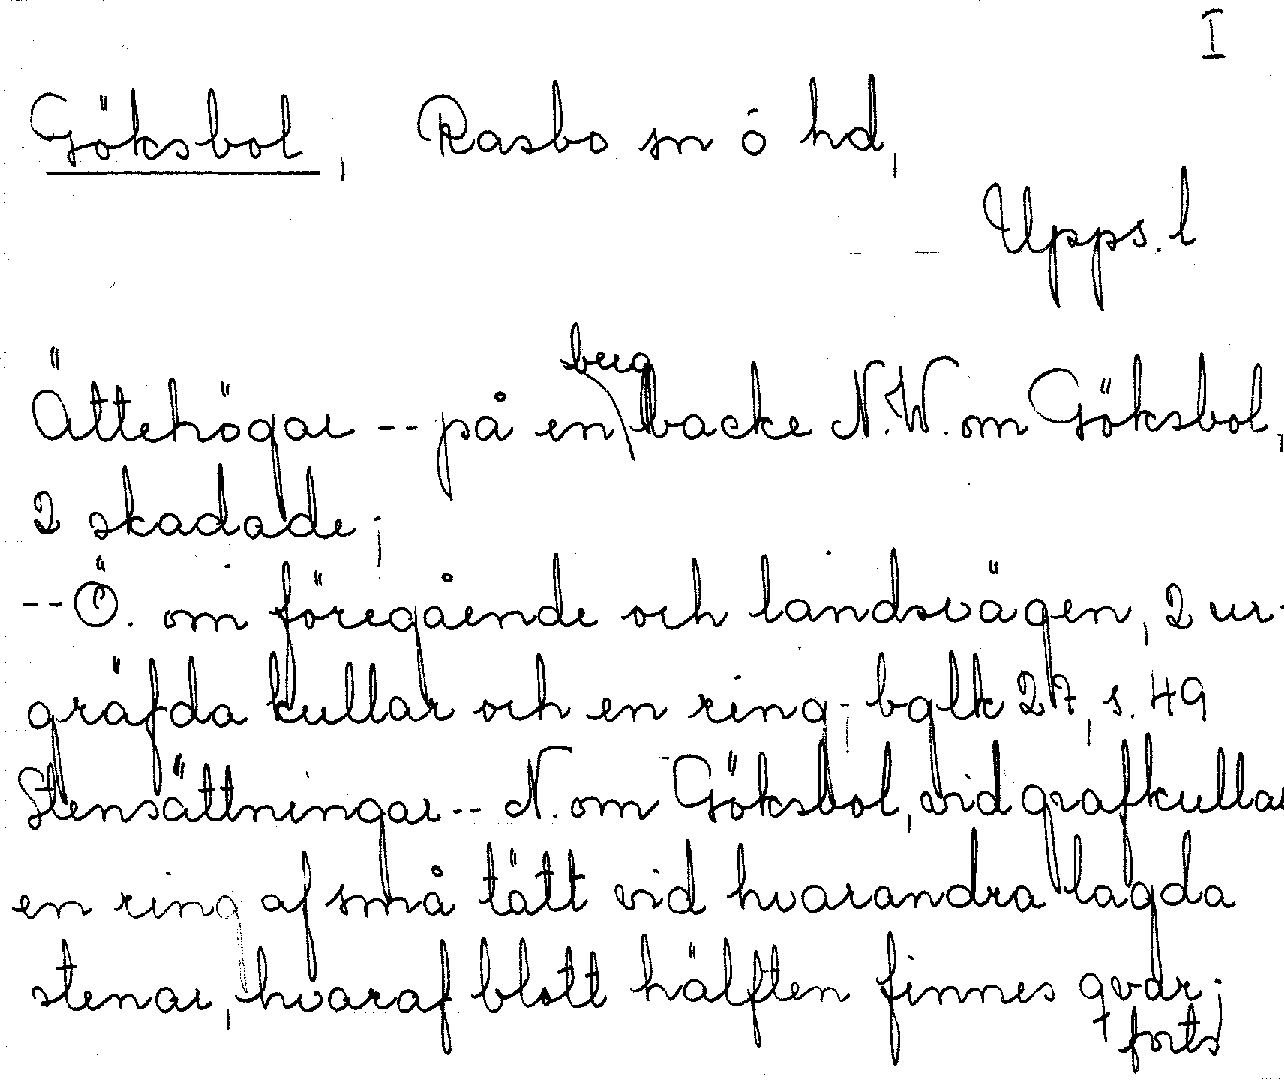 I
Göksbol, Rasbo sn ó hd,
Upps. l
Ättehögar -- på en berg backe N.W. om Göksbol,
2 skadade;
-- Ö. om föregående och landsvägen, 2 ur-
gräfda kullar och en ring; bglk 27, s. 49
Stensättningar -- N. om Göksbol, vid grafkullar
en ring af små tätt vid hvarandra lagda
stenar, hvaraf blott hälften finnes qvar;
forts